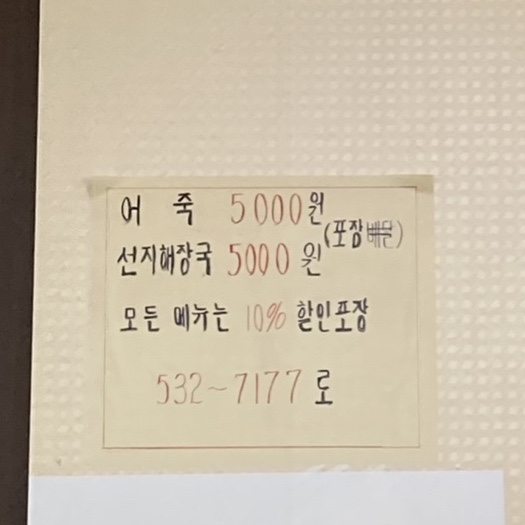 어 죽 5000원
(포장배달)
선지해장국 5000원
모든 메뉴는 10% 할인포장
532~7177로